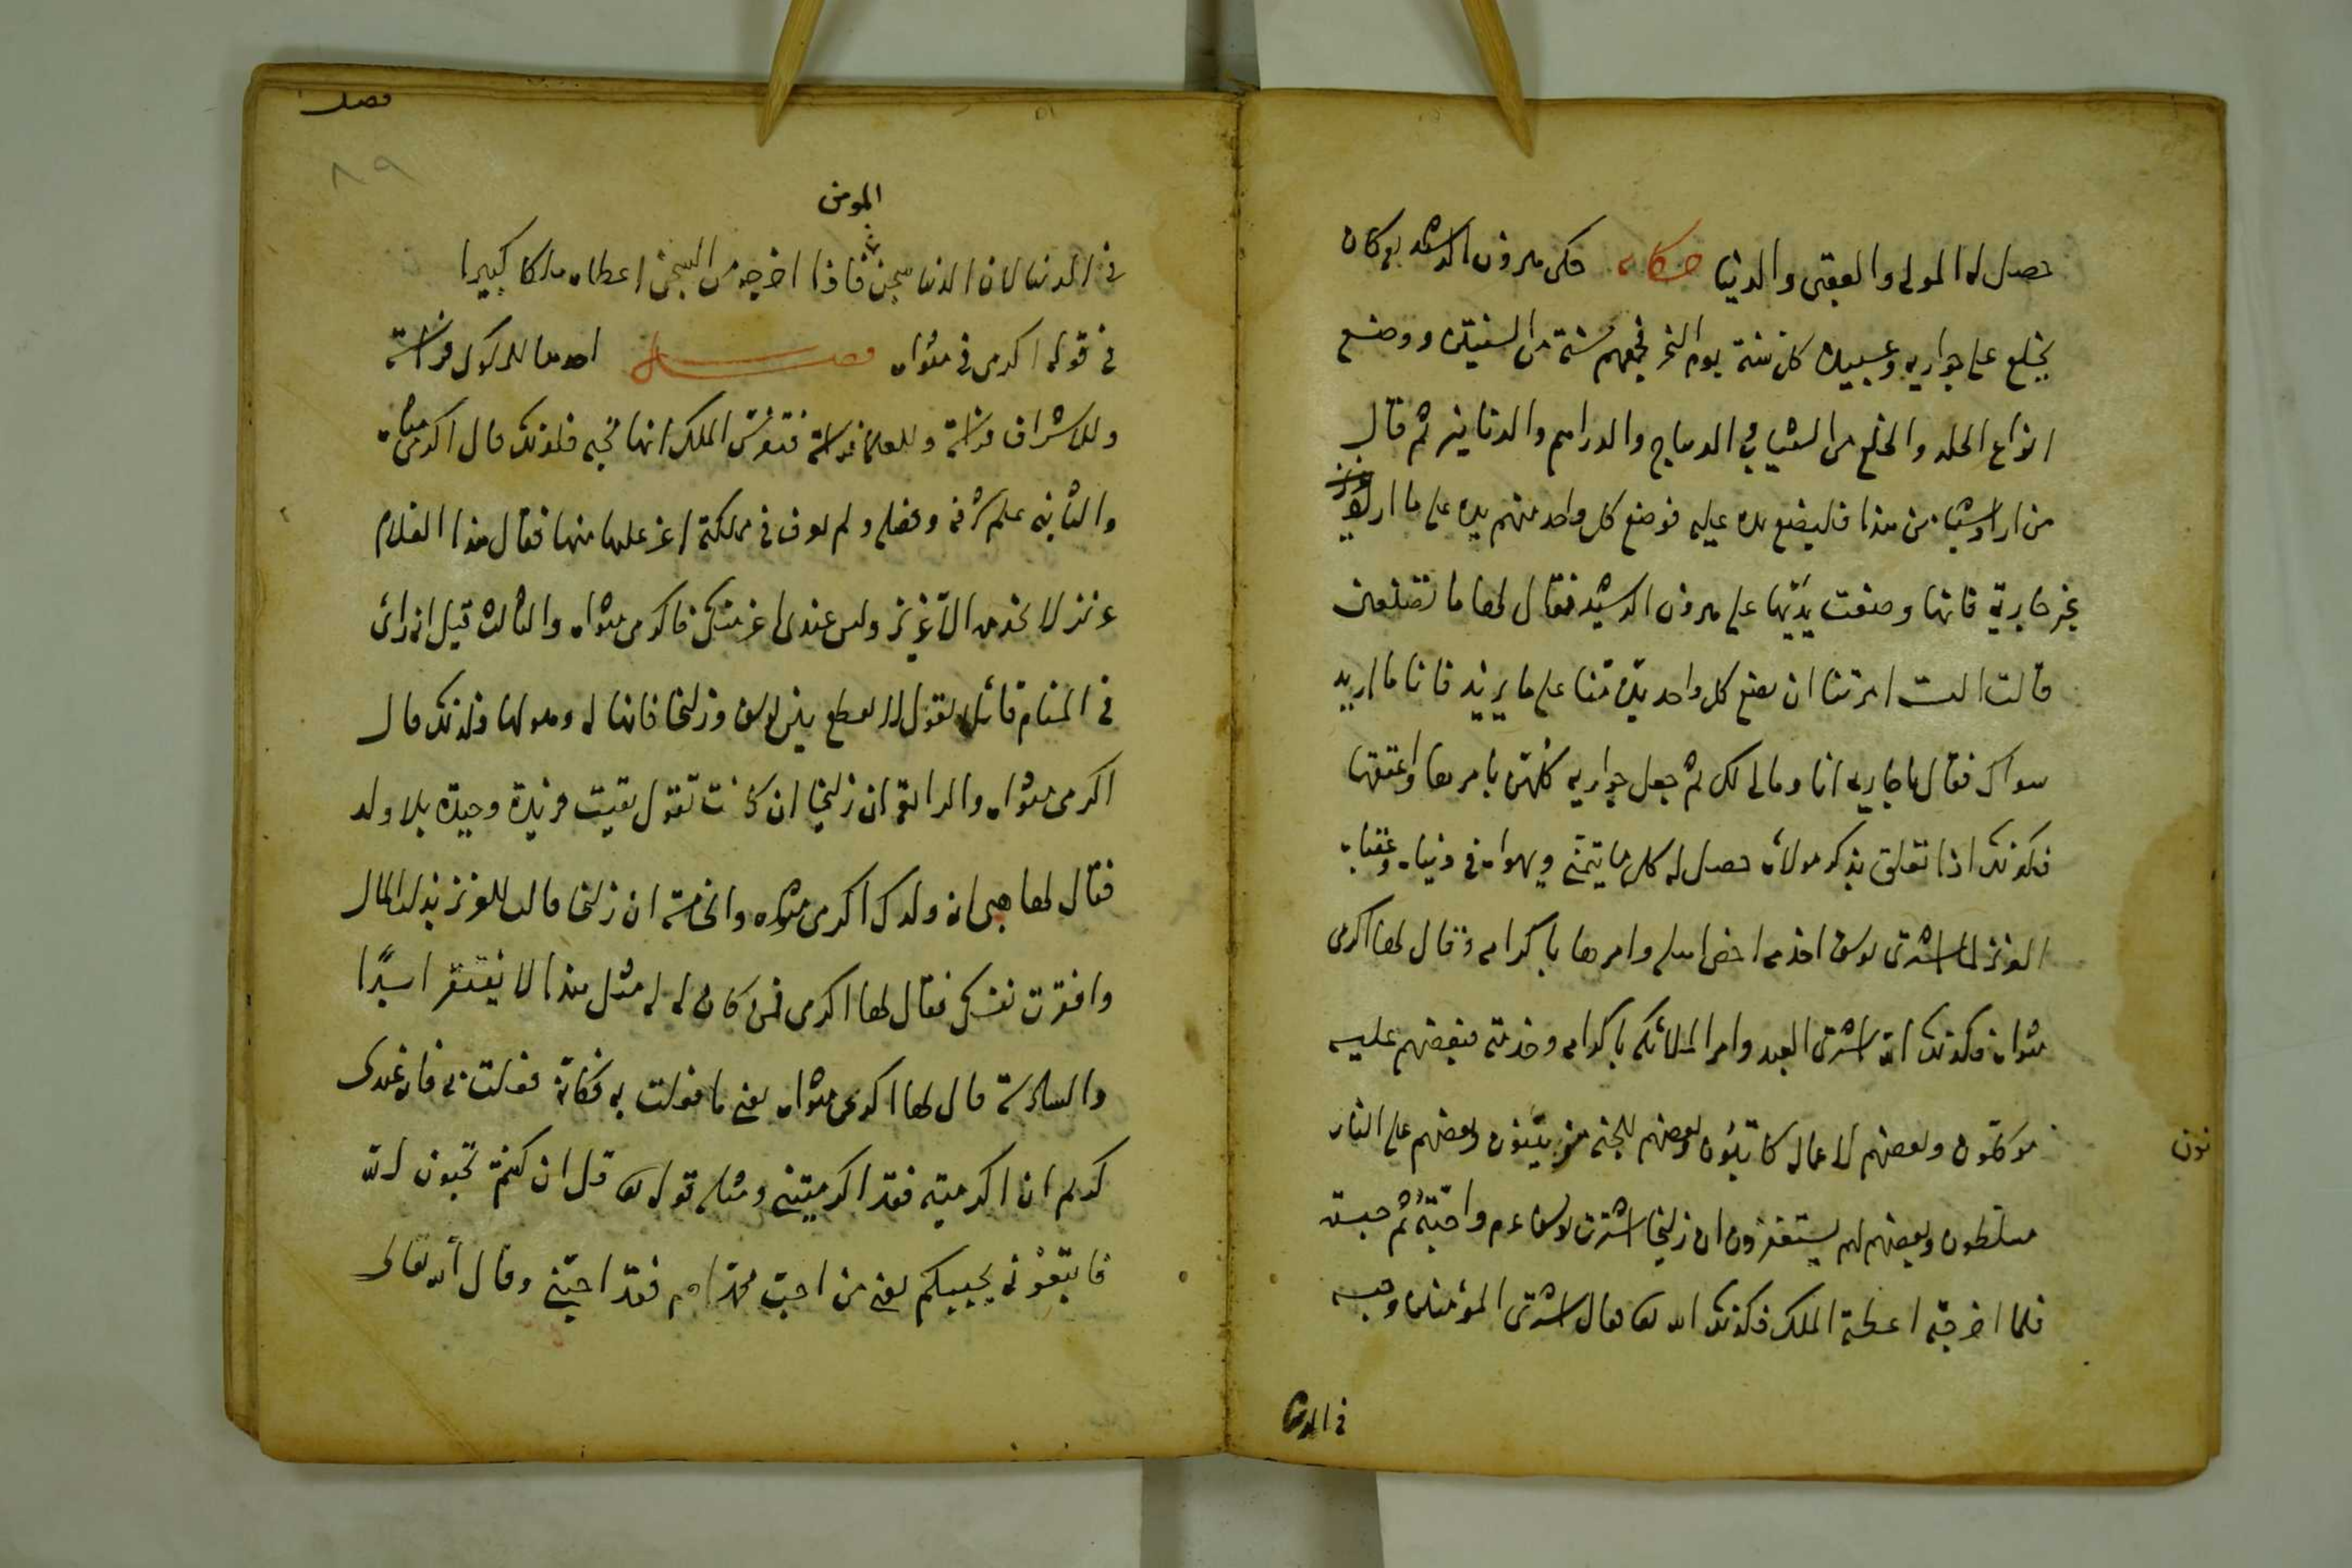 حصل له المولى والعقبى والدنيا حكاية حكى هرون الرشيد انه كان
يخلع على جواريه وعبيده كل سنة يوم النحر فجمعهم سنة من السنين ووضع
انواع الحلل والخلع من الثياب والديباج والدراهم والدنانير ثم قال
من اراد شيئا من هذا فليضع يده عليه فوضع كل واحد منهم يده على ما اراد
غير جارية فانها وضعت يديها على هرون الرشيد فقال لها ما تصنعين
قالت الست امرتنا ان يضع كل واحد يده منا على ما يريد فانا ما اريد
سواك فقال يا جارية انا ومالى لك ثم جعل جواريه كلهن بامرها واعتقها
فكذلك اذا تعلق بذكر مولاه حصل له كل ما يتمنى ويهواه فى دنياه وعقباه
العزيز لما اشترى يوسف اخدمه اخص اهله وامرها باكرامه وقال لها اكرمى
مثواه فكذلك الله اشترى العبد وامر الملائكة باكرامه وخدمته فبعضهم عليه
موكلون وبعضهم لاعماله كاتبون وبعضهم للجنة مزينون وبعضهم على النار
نون
مسلطون وبعضهم لهم يستغفرون ان زليخا اشترت يوسف عم واحبته ثم حبسته
فلما اخرجته اعطته الملك فكذلك الله تعالى اشترى المؤمنين وحبسه
فى الدنيا
فصل
٨٩
المومن
فى الدنيا لان الدنيا سجن فاذا اخرجه من السجن اعطاه ملكا كبيرا
فى قوله اكرمى مثواه فصل احدها للملوك فراسة
وللاشراف فراسة وللعلماء فراسة فتفرس الملك انها تحبه فلذلك قال اكرمى مثواه
والثانية علم شرفه وفضله ولم يعرف فى مملكته اعز عليها منها فقال هذا الغلام
عزيز لا يخدمه الا عزيز وليس عندى اعز منك فاكرمى مثواه والثالث قيل انه رأى
فى المنام قائلا يقول لا تقطع بين يوسف وزليخا فانها له وهو لها فلذلك قال
اكرمى مثواه والرابع ان زليخا ان كانت تقول بقيت فريدة وحيدة بلا ولد
فقال لها هبى انه ولدك اكرمى مثواه والخامسة ان زليخا قالت للعزيز بذلت المال
وافقرت نفسك فقال لها اكرمى فمن كان له له مثل هذا لا يفتقر ابدا
والسادسة قال لها اكرمى مثواه يعنى ما فعلت به فكانه فعلت بى فانه عندى
كريم ان اكرميته فقد اكرميتنى ومثله قوله تعالى قل ان كنتم تحبون الله
فاتبعونى يحببكم يعنى من احب محمدا عم فقد احبنى وقال الله تعالى